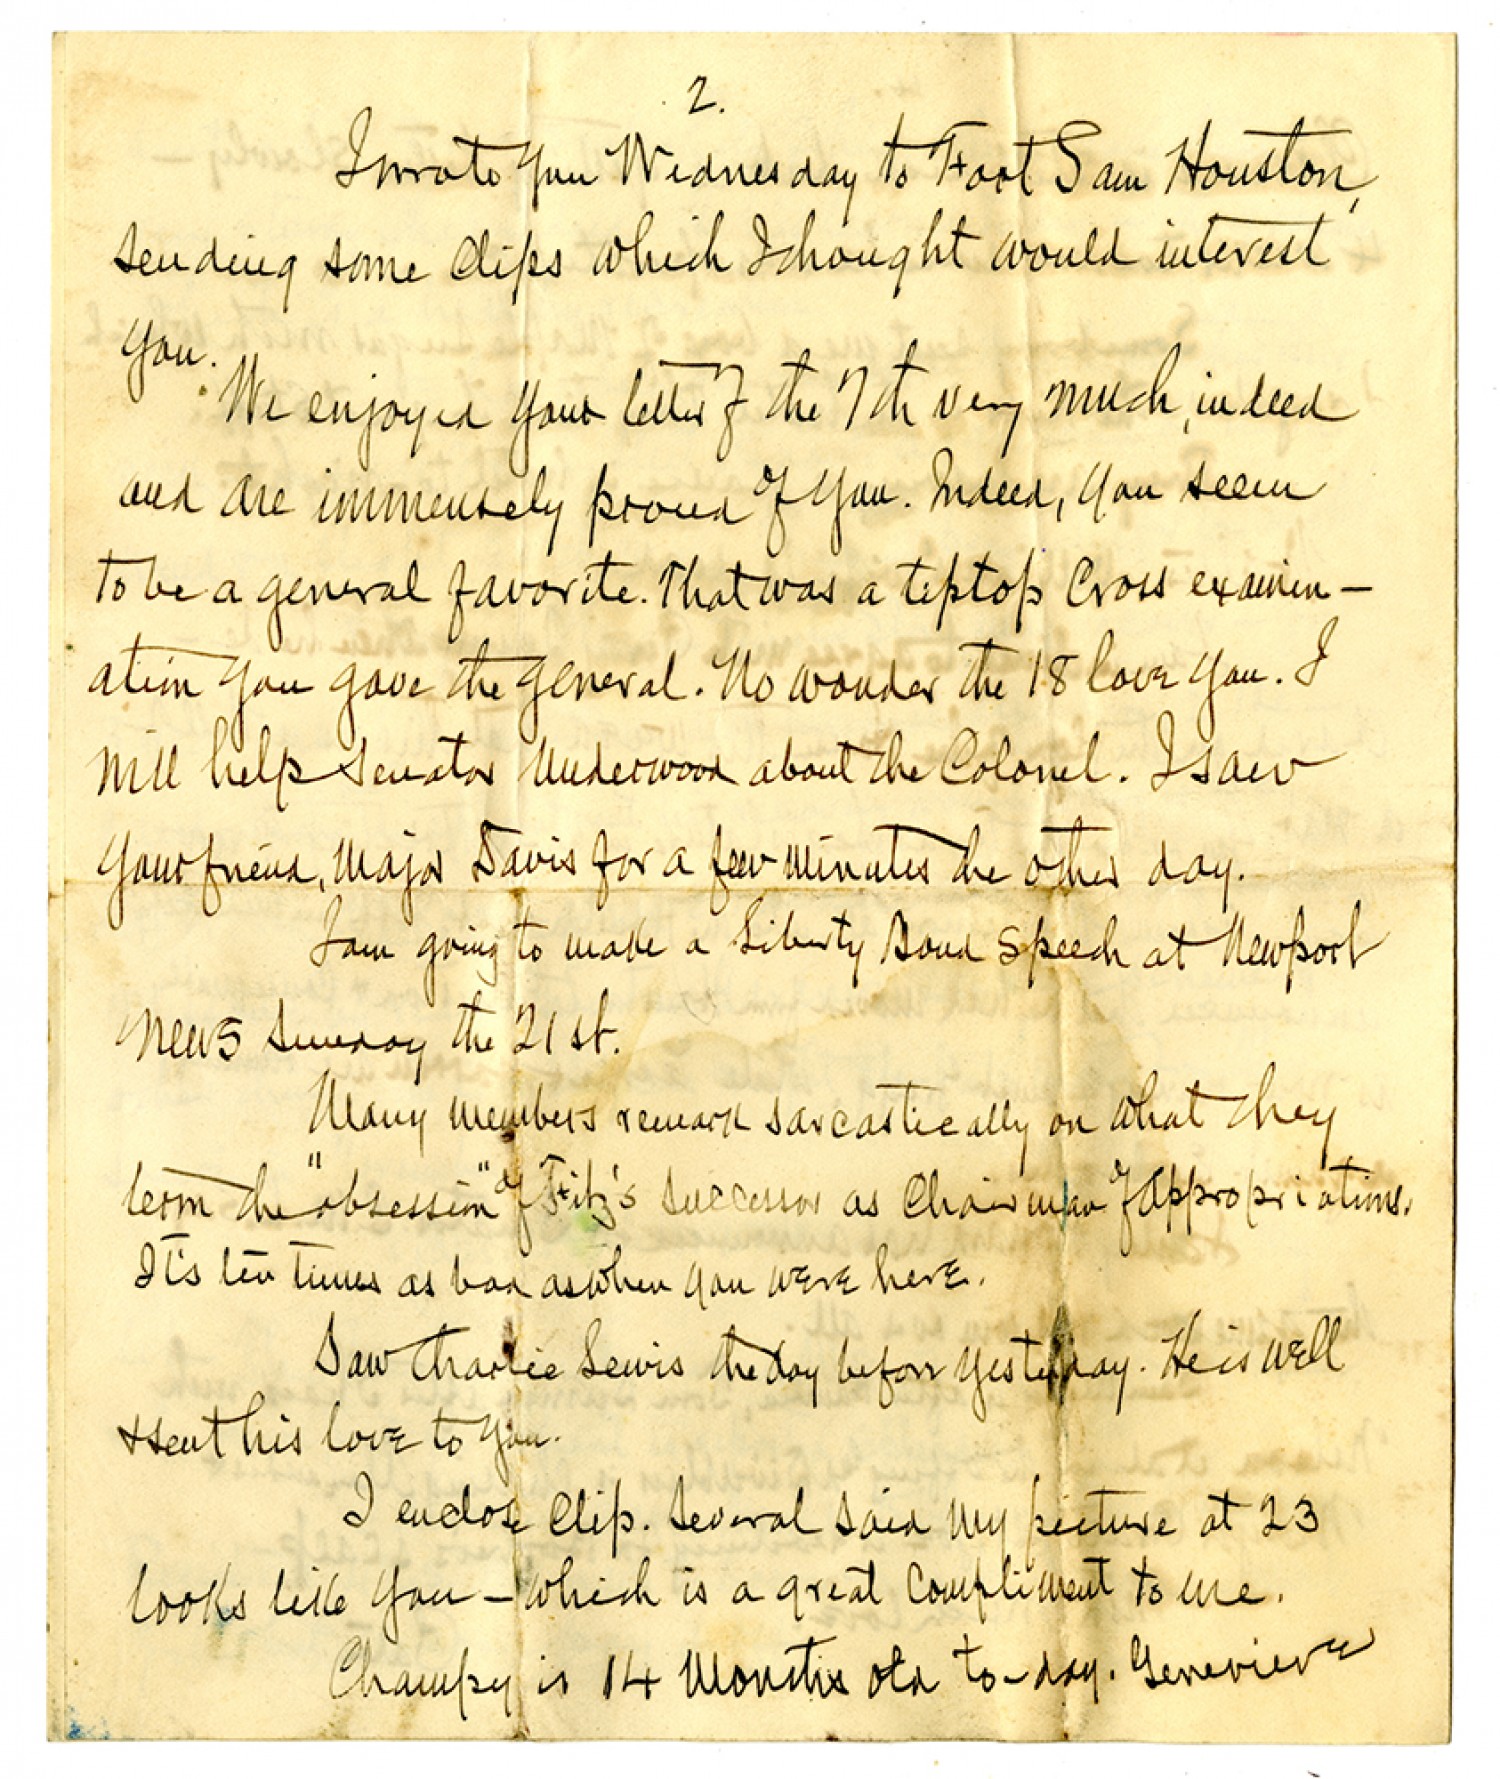 2.
I wrote you Wednesday to Fort Sam Houston,
sending some clips which I thought would interest
you.
We enjoyed your letter of the 7th very much, indeed
and are immensely proud of you. Indeed, you seem
to be a general favorite. That was a tiptop cross examin-
ation you gave the General. No wonder the 18 love you. I
will help Senator Underwood about the Colonel. I saw
your friend, Major Davis for a few minutes the other day.
I am going to make a Liberty Bond speech at Newport
News Sunday the 21st.
Many members remark sarcastically on what they
term the "obsession" of Fitz's successor as Chairman of Appropriations.
It's ten times as bad as when you were here.
Saw Charlie Lewis the day before yesterday. He is well
& sent his love to you.
I enclose clip. Several said my picture at 23
looks like you – which is a great compliment to me.
Champy is 14 months old to-day. Genevieve